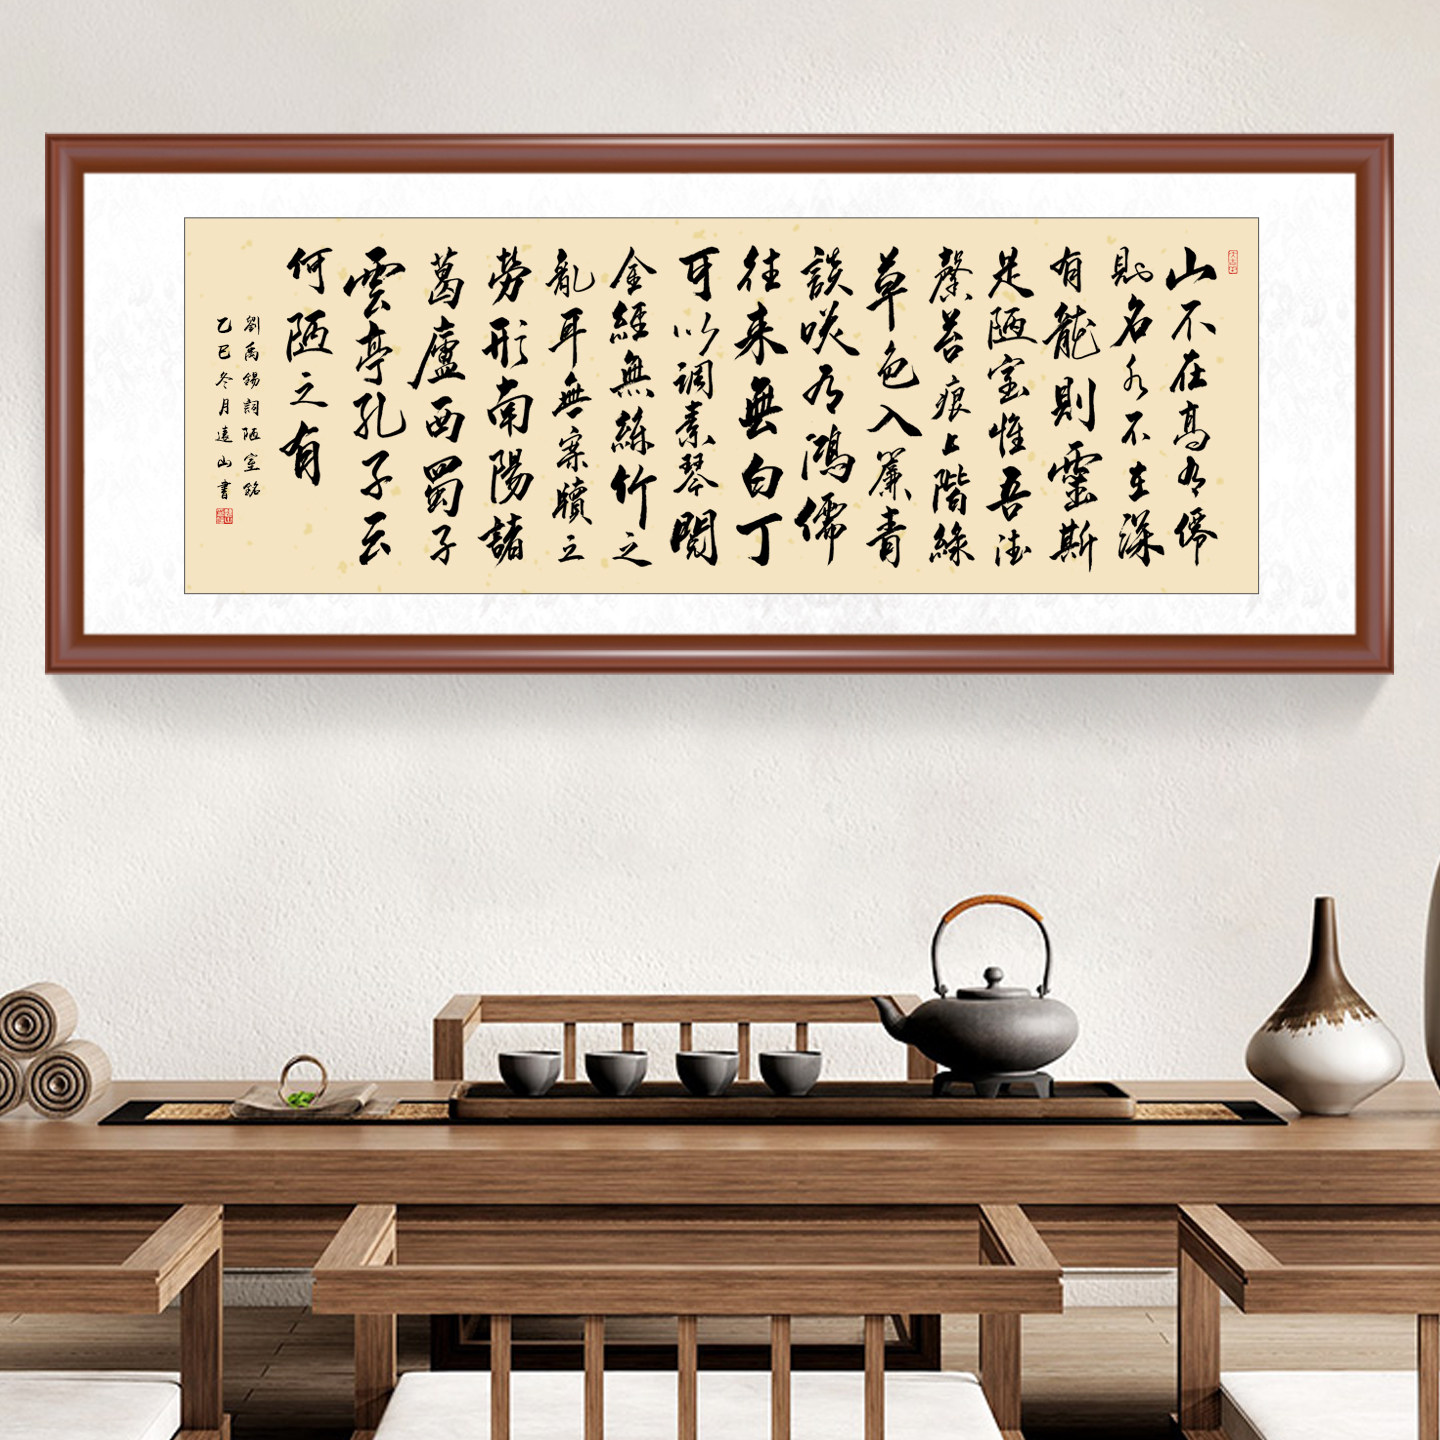 山不在高有僊
則名水不在深
有龍則靈斯
是陋室惟吾德
馨苔痕上階綠
草色入簾青
談咲有鴻儒
往来無白丁
可以調素琴閱
金經無絲竹之
亂耳無案牘之
勞形南陽諸
葛廬西蜀子
雲亭孔子云
何陋之有
劉禹錫詞陋室銘
乙巳冬月遠山書